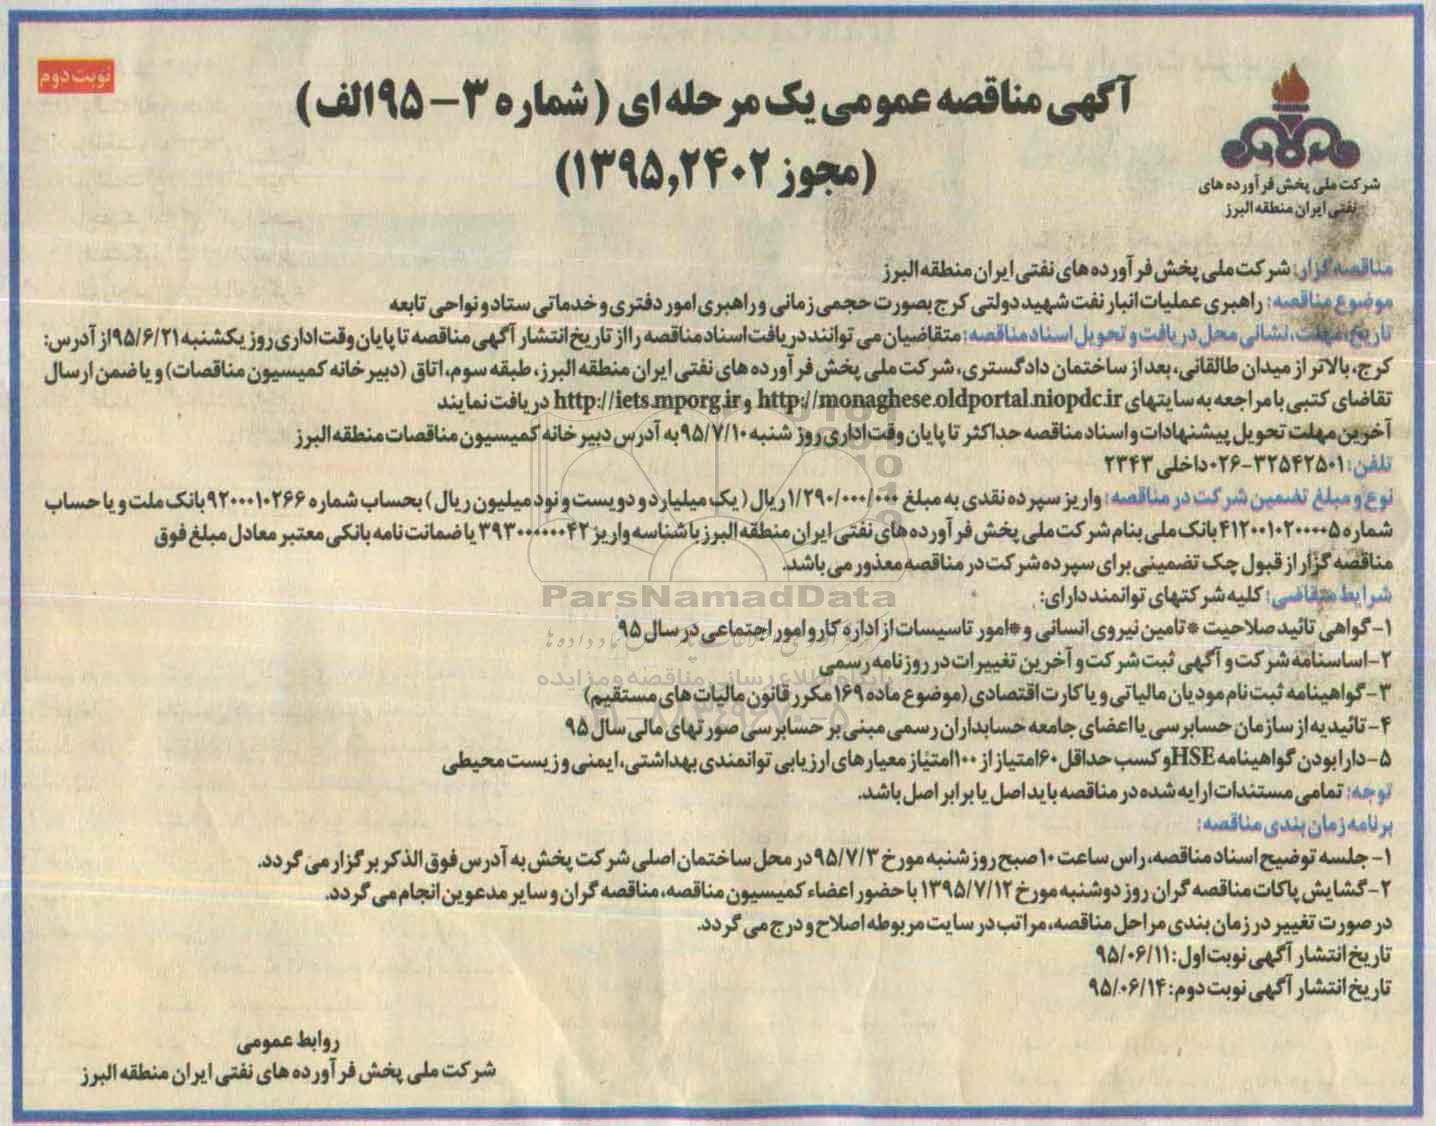 نوبت دوم
آگهی مناقصه عمومی یک مرحله ای (شماره ۳ - ۹۵الف)
(مجوز ۱۳۹۵,۲۴۰۲)
شرکت ملی پخش فرآورده های
نفتی ایران منطقه البرز
مناقصه گزار: شرکت ملی پخش فرآورده های نفتی ایران منطقه البرز
موضوع مناقصه: راهبری عملیات انبار نفت شهید دولتی کرج بصورت حجمی زمانی و راهبری امور دفتری و خدماتی ستاد و نواحی تابعه
تاریخ، مهلت، نشانی محل دریافت و تحویل اسناد مناقصه: متقاضیان می توانند دریافت اسناد مناقصه را از تاریخ انتشار آگهی مناقصه تا پایان وقت اداری روز یکشنبه ۹۵/۶/۲۱ از آدرس:
کرج، بالاتر از میدان طالقانی، بعد از ساختمان دادگستری، شرکت ملی پخش فرآورده های نفتی ایران منطقه البرز، طبقه سوم، اتاق (دبیرخانه کمیسیون مناقصات) و یا ضمن ارسال
تقاضای کتبی با مراجعه به سایتهای http://monaghese.oldportal.niopdc.ir و http://iets.mporg.ir دریافت نمایند
آخرین مهلت تحویل پیشنهادات و اسناد مناقصه حداکثر تا پایان وقت اداری روز شنبه ۹۵/۷/۱۰ به آدرس دبیرخانه کمیسیون مناقصات منطقه البرز
تلفن: ۳۲۵۴۲۵۰۱-۰۲۶ داخلی ۲۳۴۳
نوع و مبلغ تضمین شرکت در مناقصه: واریز سپرده نقدی به مبلغ ۱/۲۹۰/۰۰۰/۰۰۰ ریال (یک میلیارد و دویست و نود میلیون ریال) بحساب شماره ۹۲۰۰۰۱۰۲۶۶ بانک ملت و یا حساب
شماره ۴۱۲۰۰۱۰۲۰۰۰۰۵ بانک ملی بنام شرکت ملی پخش فرآورده های نفتی ایران منطقه البرز با شناسه واریز ۳۹۳۰۰۰۰۰۰۴۲ یا ضمانت نامه بانکی معتبر معادل مبلغ فوق
مناقصه گزار از قبول چک تضمینی برای سپرده شرکت در مناقصه معذور می باشد.
شرایط متقاضی: کلیه شرکتهای توانمند دارای:
۱- گواهی تائید صلاحیت *تامین نیروی انسانی و *امور تاسیسات از اداره کار و امور اجتماعی در سال ۹۵
۲- اساسنامه شرکت و آگهی ثبت شرکت و آخرین تغییرات در روزنامه رسمی
۳- گواهینامه ثبت نام مودیان مالیاتی و یا کارت اقتصادی (موضوع ماده ۱۶۹ مکرر قانون مالیات های مستقیم)
۴- تائیدیه از سازمان حسابرسی یا اعضای جامعه حسابداران رسمی مبنی بر حسابرسی صورتهای مالی سال ۹۵
۵- دارا بودن گواهینامه HSE و کسب حداقل ۶۰ امتیاز از ۱۰۰ امتیاز معیارهای ارزیابی توانمندی بهداشتی، ایمنی و زیست محیطی
توجه: تمامی مستندات ارایه شده در مناقصه باید اصل یا برابر اصل باشد.
برنامه زمان بندی مناقصه:
۱- جلسه توضیح اسناد مناقصه، راس ساعت ۱۰ صبح روز شنبه مورخ ۹۵/۷/۳ در محل ساختمان اصلی شرکت پخش به آدرس فوق الذکر برگزار می گردد.
۲- گشایش پاکات مناقصه گران روز دوشنبه مورخ ۱۳۹۵/۷/۱۲ با حضور اعضاء کمیسیون مناقصه، مناقصه گران و سایر مدعوین انجام می گردد.
در صورت تغییر در زمان بندی مراحل مناقصه، مراتب در سایت مربوطه اصلاح و درج می گردد.
تاریخ انتشار آگهی نوبت اول: ۹۵/۰۶/۱۱
تاریخ انتشار آگهی نوبت دوم: ۹۵/۰۶/۱۴
روابط عمومی
شرکت ملی پخش فرآورده های نفتی ایران منطقه البرز
ParsNamadData
پایگاه اطلاع رسانی مناقصه و مزایده